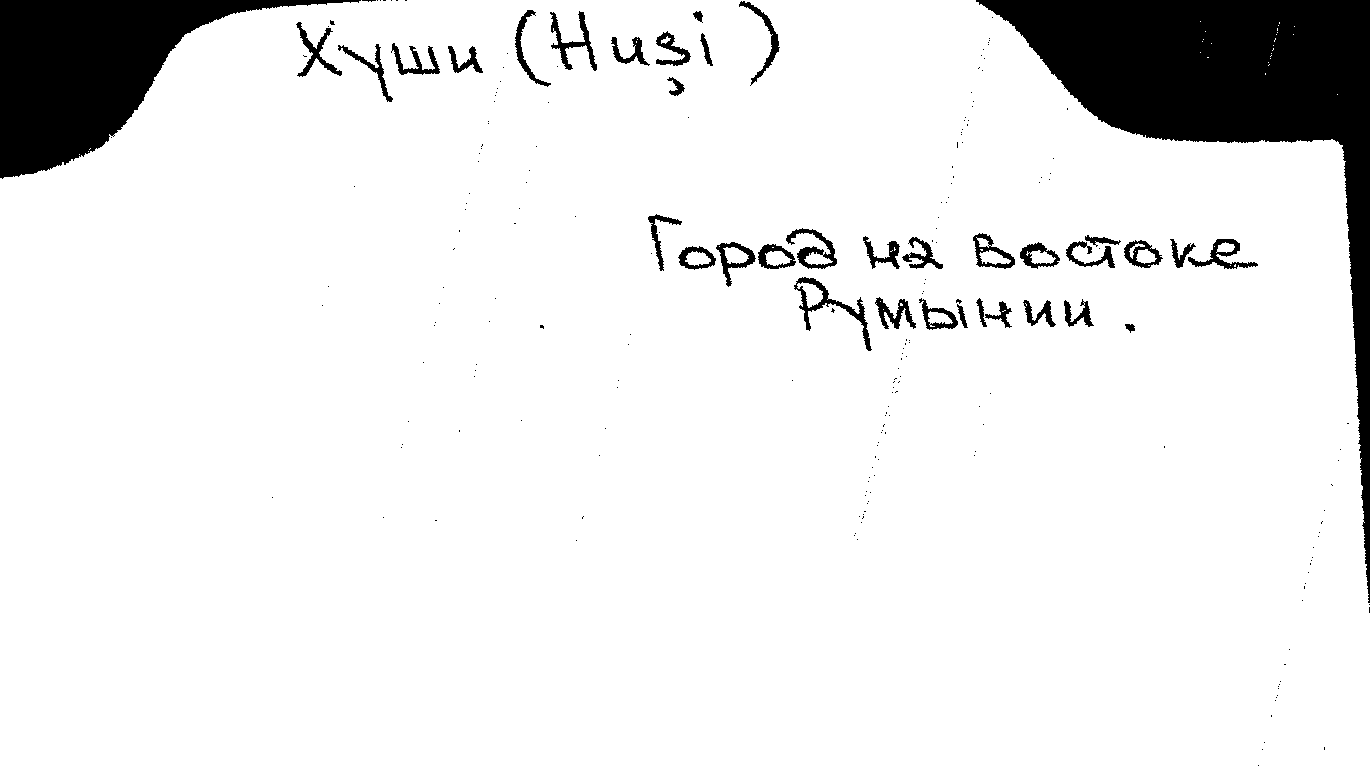 Хуши (Huşi)
Город на востоке
Румынии.